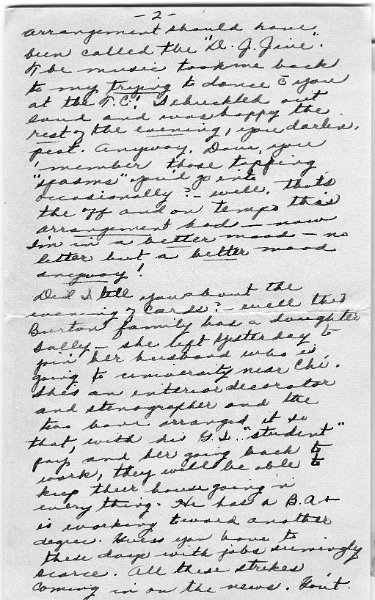 -2-
arrangement should have
been called the "D. J. Jive".
The music took me back
to my trying to dance c̄ you
at the T.C.! I chuckled out
loud and was happy the
rest of the evening, you darlin,
pest. Anyway, Dave, you
'member those tapping
"spasms" you'd go into
occasionally? - well, that's
the off and on tempo this
arrangement had - now
I'm in a better mood - no
letter but a better mood
anyway!
Did I tell you about the
evening of cards? - well this
Burton family has a daughter
Sally - she left yesterday to
join her husband who is
going to university near Chi.
She's an interior decorator
and stenographer and the
two have arranged it so
that, with his G.I. "student"
pay and her going back to
work, they will be able to
keep their house going n
everything. He has a B.A +
is working toward another
degree. Guess you have to
these days with jobs seemingly
scarce. All these strikes
coming in on the news. Don't